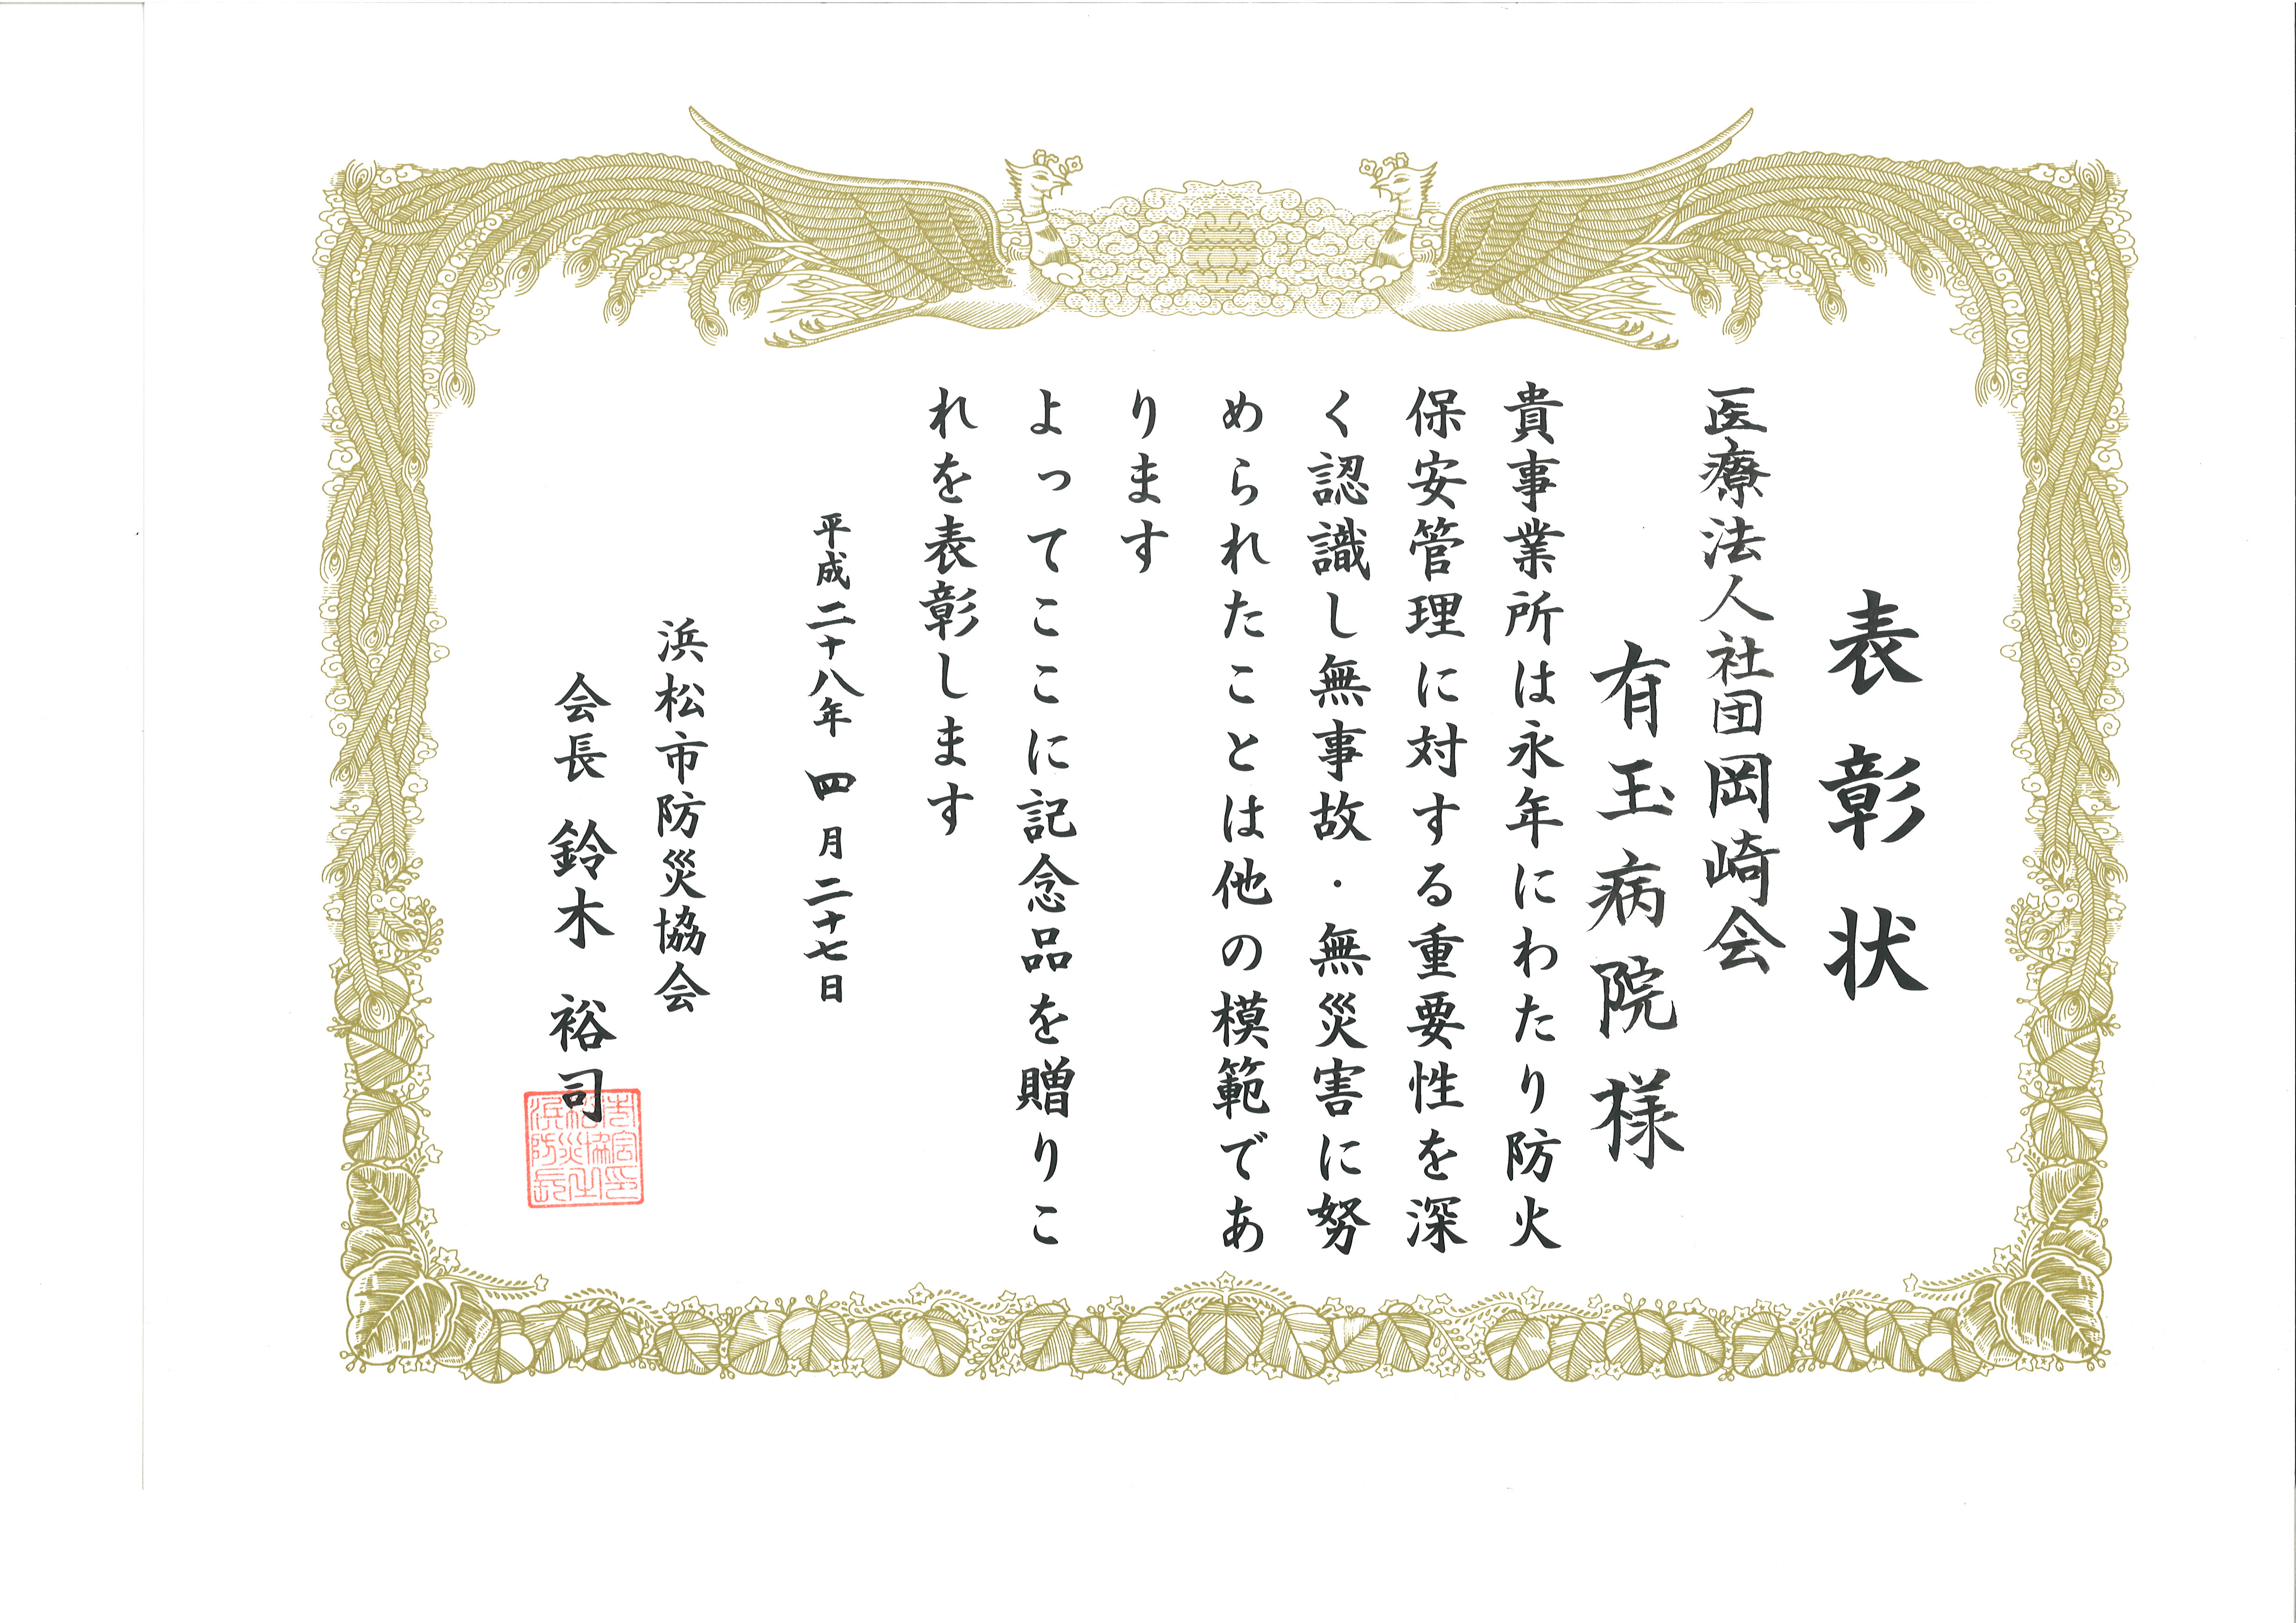 表彰状
医療法人社団岡崎会
有玉病院様
貴事業所は永年にわたり防火
保安管理に対する重要性を深
く認識し無事故・無災害に努
められたことは他の模範であ
ります
よってここに記念品を贈りこ
れを表彰します
平成二十八年 四 月 二十七日
浜松市防災協会
会長 鈴木 裕司